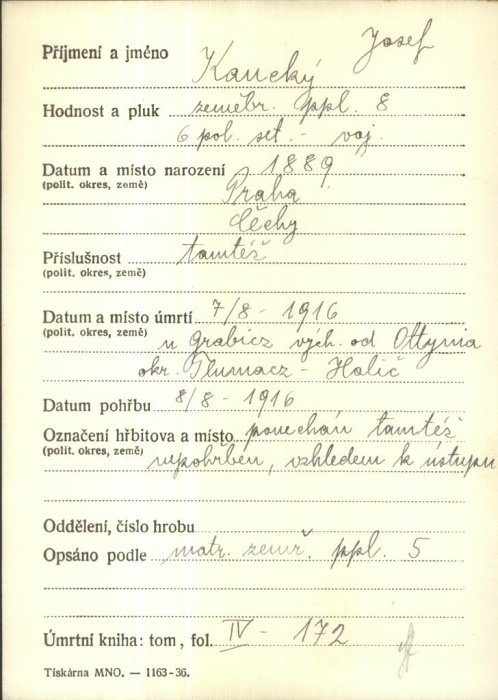 Josef
Příjmení a jméno Kaucký
Hodnost a pluk zeměbr. ppl. 8
6 pol. set. - voj.
Datum a místo narození 1889
(polit. okres, země) Praha
Čechy
Příslušnost tamtéž
(polit. okres, země)
Datum a místo úmrtí 7/8 - 1916
(polit. okres, země) u Grabicz vých. od Ottynia
okr. Tlumacz - Halič
Datum pohřbu 8/8 - 1916
Označení hřbitova a místo ponechán tamtéž
(polit. okres, země) nepohřben, vzhledem k ústupu
Oddělení, číslo hrobu
Opsáno podle matr. zemř. ppl. 5
Úmrtní kniha: tom, fol. IV - 172
Tiskárna MNO. — 1163-36.